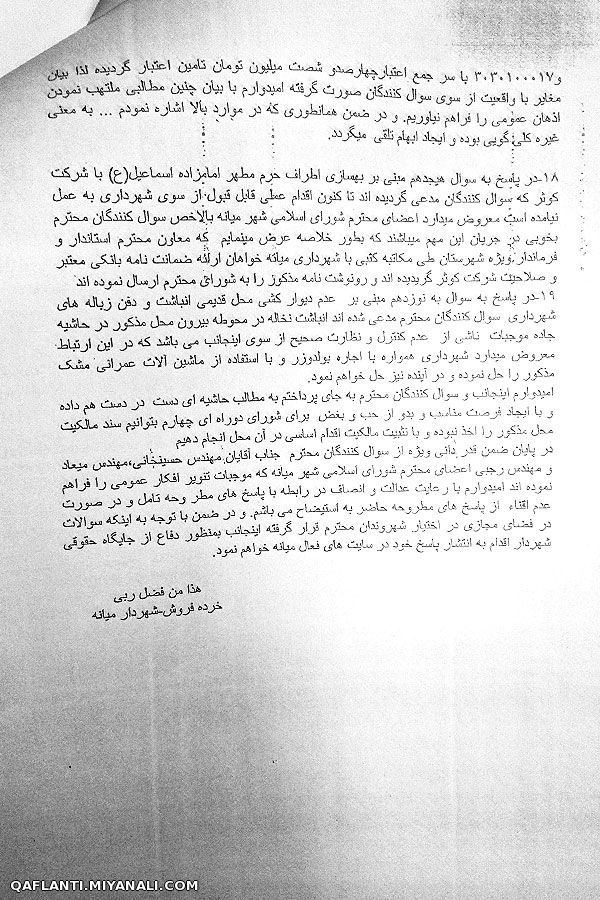 و۳۰۳۰۱۰۰۰۱۷ با سر جمع اعتبارچهارصدو شصت میلیون تومان تامین اعتبار گردیده لذا بیان
مغایر با واقعیت از سوی سوال کنندگان صورت گرفته امیدوارم با بیان چنین مطالبی ملتهب نمودن
اذهان عمومی را فراهم نیاوریم. و در ضمن همانطوری که در موارد بالا اشاره نمودم ... به معنی
غیره کلی گویی بوده و ایجاد ابهام تلقی میگردد.
۱۸-در پاسخ به سوال هیجدهم مبنی بر بهسازی اطراف حرم مطهر امامزاده اسماعیل(ع) با شرکت
کوثر که سوال کنندگان مدعی گردیده اند تا کنون اقدام عملی قابل قبول از سوی شهرداری به عمل
نیامده است معروض میدارد اعضای محترم شورای اسلامی شهر میانه بالاخص سوال کنندگان محترم
بخوبی در جریان این مهم میباشند که بطور خلاصه عرض مینمایم که معاون محترم استاندار و
فرماندار ویژه شهرستان طی مکاتبه کتبی با شهرداری میانه خواهان ارائه ضمانت نامه بانکی معتبر
و صلاحیت شرکت کوثر گردیده اند و رونوشت نامه مذکور را به شورای محترم ارسال نموده اند
۱۹-در پاسخ به سوال به نوزدهم مبنی بر عدم دیوار کشی محل قدیمی انباشت و دفن زباله های
شهرداری سوال کنندگان محترم مدعی شده اند انباشت نخاله در محوطه بیرون محل مذکور در حاشیه
جاده موجبات ناشی از عدم کنترل و نظارت صحیح از سوی اینجانب می باشد که در این ارتباط
معروض میدارد شهرداری همواره با اجاره بولدوزر و با استفاده از ماشین آلات عمرانی مشک
مذکور را حل نموده و در آینده نیز حل خواهم نمود.
امیدوارم اینجانب و سوال کنندگان محترم به جای پرداختم به مطالب حاشیه ای دست در دست هم داده
و با ایجاد فرصت مناسب و بدو از حب و بغض برای شورای دوراه ای چهارم بتوانیم سند مالکیت
محل مذکور را اخذ نبوده و با تثبیت مالکیت اقدام اساسی در آن محل انجام دهیم
در پایان ضمن قدر دانی ویژه از سوال کنندگان محترم جناب آقایان مهندس حسینخانی،مهندس میعاد
و مهندس رجبی اعضای محترم شورای اسلامی شهر میانه که موجبات تنویر افکار عمومی را فراهم
نموده اند امیدوارم با رعایت عدالت و انصاف در رابطه با پاسخ های مطر وحه تامل و در صورت
عدم اقناء از پاسخ های مطروحه حاضر به استیضاح می باشم. و در ضمن با توجه به اینکه سوالات
در فضای مجازی در اختیار شهروندان محترم قرار گرفته اینجانب بمنظور دفاع از جایگاه حقوقی
شهردار اقدام به انتشار پاسخ خود در سایت های فعال میانه خواهم نمود.
هذا من فضل ربی
خرده فروش-شهردار میانه
QAFLANTI.MIYANALI.COM